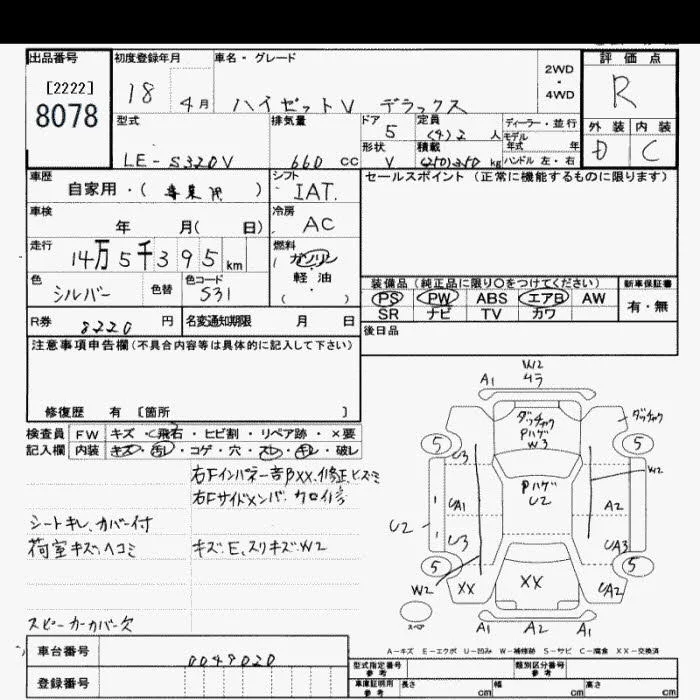 出品番号
初度登録年月
車名・グレード
評価点
[2222]
8078
18
4月
ハイゼットV デラックス
2WD
・
4WD
R
型式
排気量
ドア
5
定員
(4)2人
ディーラー・並行
モデル
年式
年
外装
内装
LE-S320V
660 CC
形状
V
積載
(250)350 kg
ハンドル 左・右
D
C
車歴
自家用・(事業用)
シフト
IAT
セールスポイント (正常に機能するものに限ります)
車検
年 月( 日)
冷房
AC
走行
14万5千395km
燃料
ガソリン
・
軽・油
( )
色
シルバー
色替
色コード
S31
装備品 (純正品に限り○をつけてください)
新車保証書
PS PW ABS エアB AW
SR ナビ TV カワ
有・無
R券
8220円
名変通知期限
月 日
後日品
注意事項申告欄(不具合内容等は具体的に記入して下さい)
修復歴 有 [箇所 ]
検査員
記入欄
FW キズ・飛石・ヒビ割・リペア跡・×要
内装 キズ・汚レ・コゲ・穴・スレ・キレ・破レ
シートキレ、カバー付
荷室キズ、ヘコミ
キズ、E、スリキズ、W2
スピーカーカバー欠
W2
A1
ダッチャク
Pハゲ
W3
ダッチャク
5
5
U3
W2
Pハゲ
U2
UA1
A2
U2
U3
UA3
5
5
W2
XX
XX
UA2
スペア
A1
A2
A1
A-キズ E-エクボ U-凹み W-補修跡 S-サビ C-腐食 XX-交換済
車台番号
0049020
登録番号
型式指定番号
参考
類別区分番号
参考
車庫証明用
参考
長さ cm
幅 cm
高さ cm